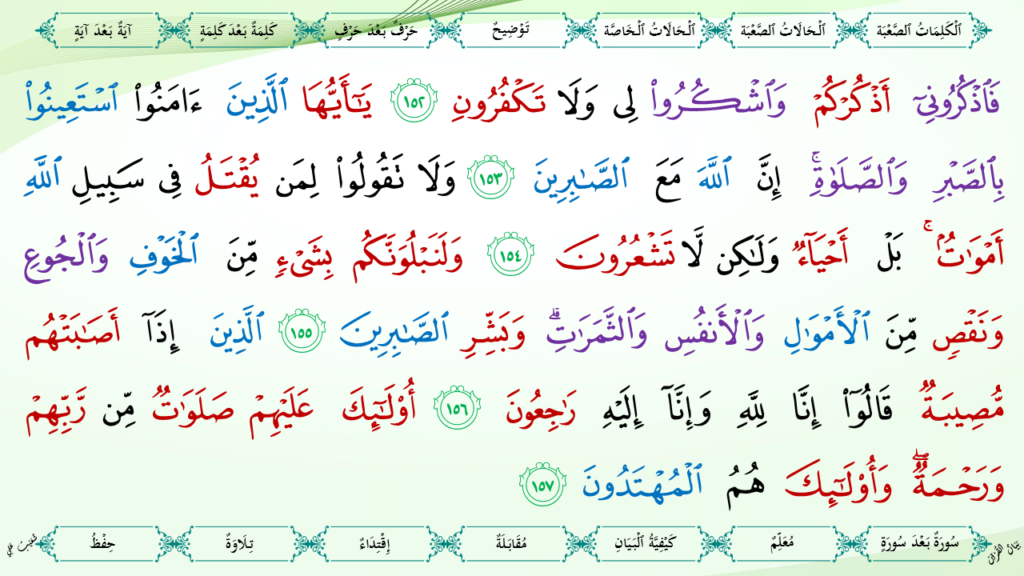 اَلْكَلِمَاتُ الصَّعْبَة اَلْحَالَاتُ الصَّعْبَة اَلْحَالَاتُ الْخَاصَّة تَوْضِيحٌ حَرْفٌ بَعْدَ حَرْفٍ كَلِمَةٌ بَعْدَ كَلِمَةٍ آيَةٌ بَعْدَ آيَةٍ
فَٱذْكُرُونِىٓ أَذْكُرْكُمْ وَٱشْكُرُوا۟ لِى وَلَا تَكْفُرُونِ ١٥٢ يَـٰٓأَيُّهَا ٱلَّذِينَ ءَامَنُوا۟ ٱسْتَعِينُوا۟
بِٱلصَّبْرِ وَٱلصَّلَوٰةِ ۚ إِنَّ ٱللَّهَ مَعَ ٱلصَّـٰبِرِينَ ١٥٣ وَلَا تَقُولُوا۟ لِمَن يُقْتَلُ فِى سَبِيلِ ٱللَّهِ
أَمْوَٰتٌۢ ۚ بَلْ أَحْيَآءٌ وَلَـٰكِن لَّا تَشْعُرُونَ ١٥٤ وَلَنَبْلُوَنَّكُم بِشَىْءٍ مِّنَ ٱلْخَوْفِ وَٱلْجُوعِ
وَنَقْصٍ مِّنَ ٱلْأَمْوَٰلِ وَٱلْأَنفُسِ وَٱلثَّمَرَٰتِ ۗ وَبَشِّرِ ٱلصَّـٰبِرِينَ ١٥٥ ٱلَّذِينَ إِذَآ أَصَـٰبَتْهُم
مُّصِيبَةٌ قَالُوٓا۟ إِنَّا لِلَّهِ وَإِنَّآ إِلَيْهِ رَٰجِعُونَ ١٥٦ أُو۟لَـٰٓئِكَ عَلَيْهِمْ صَلَوَٰتٌ مِّن رَّبِّهِمْ
وَرَحْمَةٌ ۖ وَأُو۟لَـٰٓئِكَ هُمُ ٱلْمُهْتَدُونَ ١٥٧
سُورَةٌ بَعْدَ سُورَةٍ مُعَلِّمٌ كَيْفِيَّةُ الْبَيَانِ مُقَابَلَةٌ إِقْتِدَاءٌ تِلَاوَةٌ حِفْظٌ
بَيَانُ الْقُرْآنِ